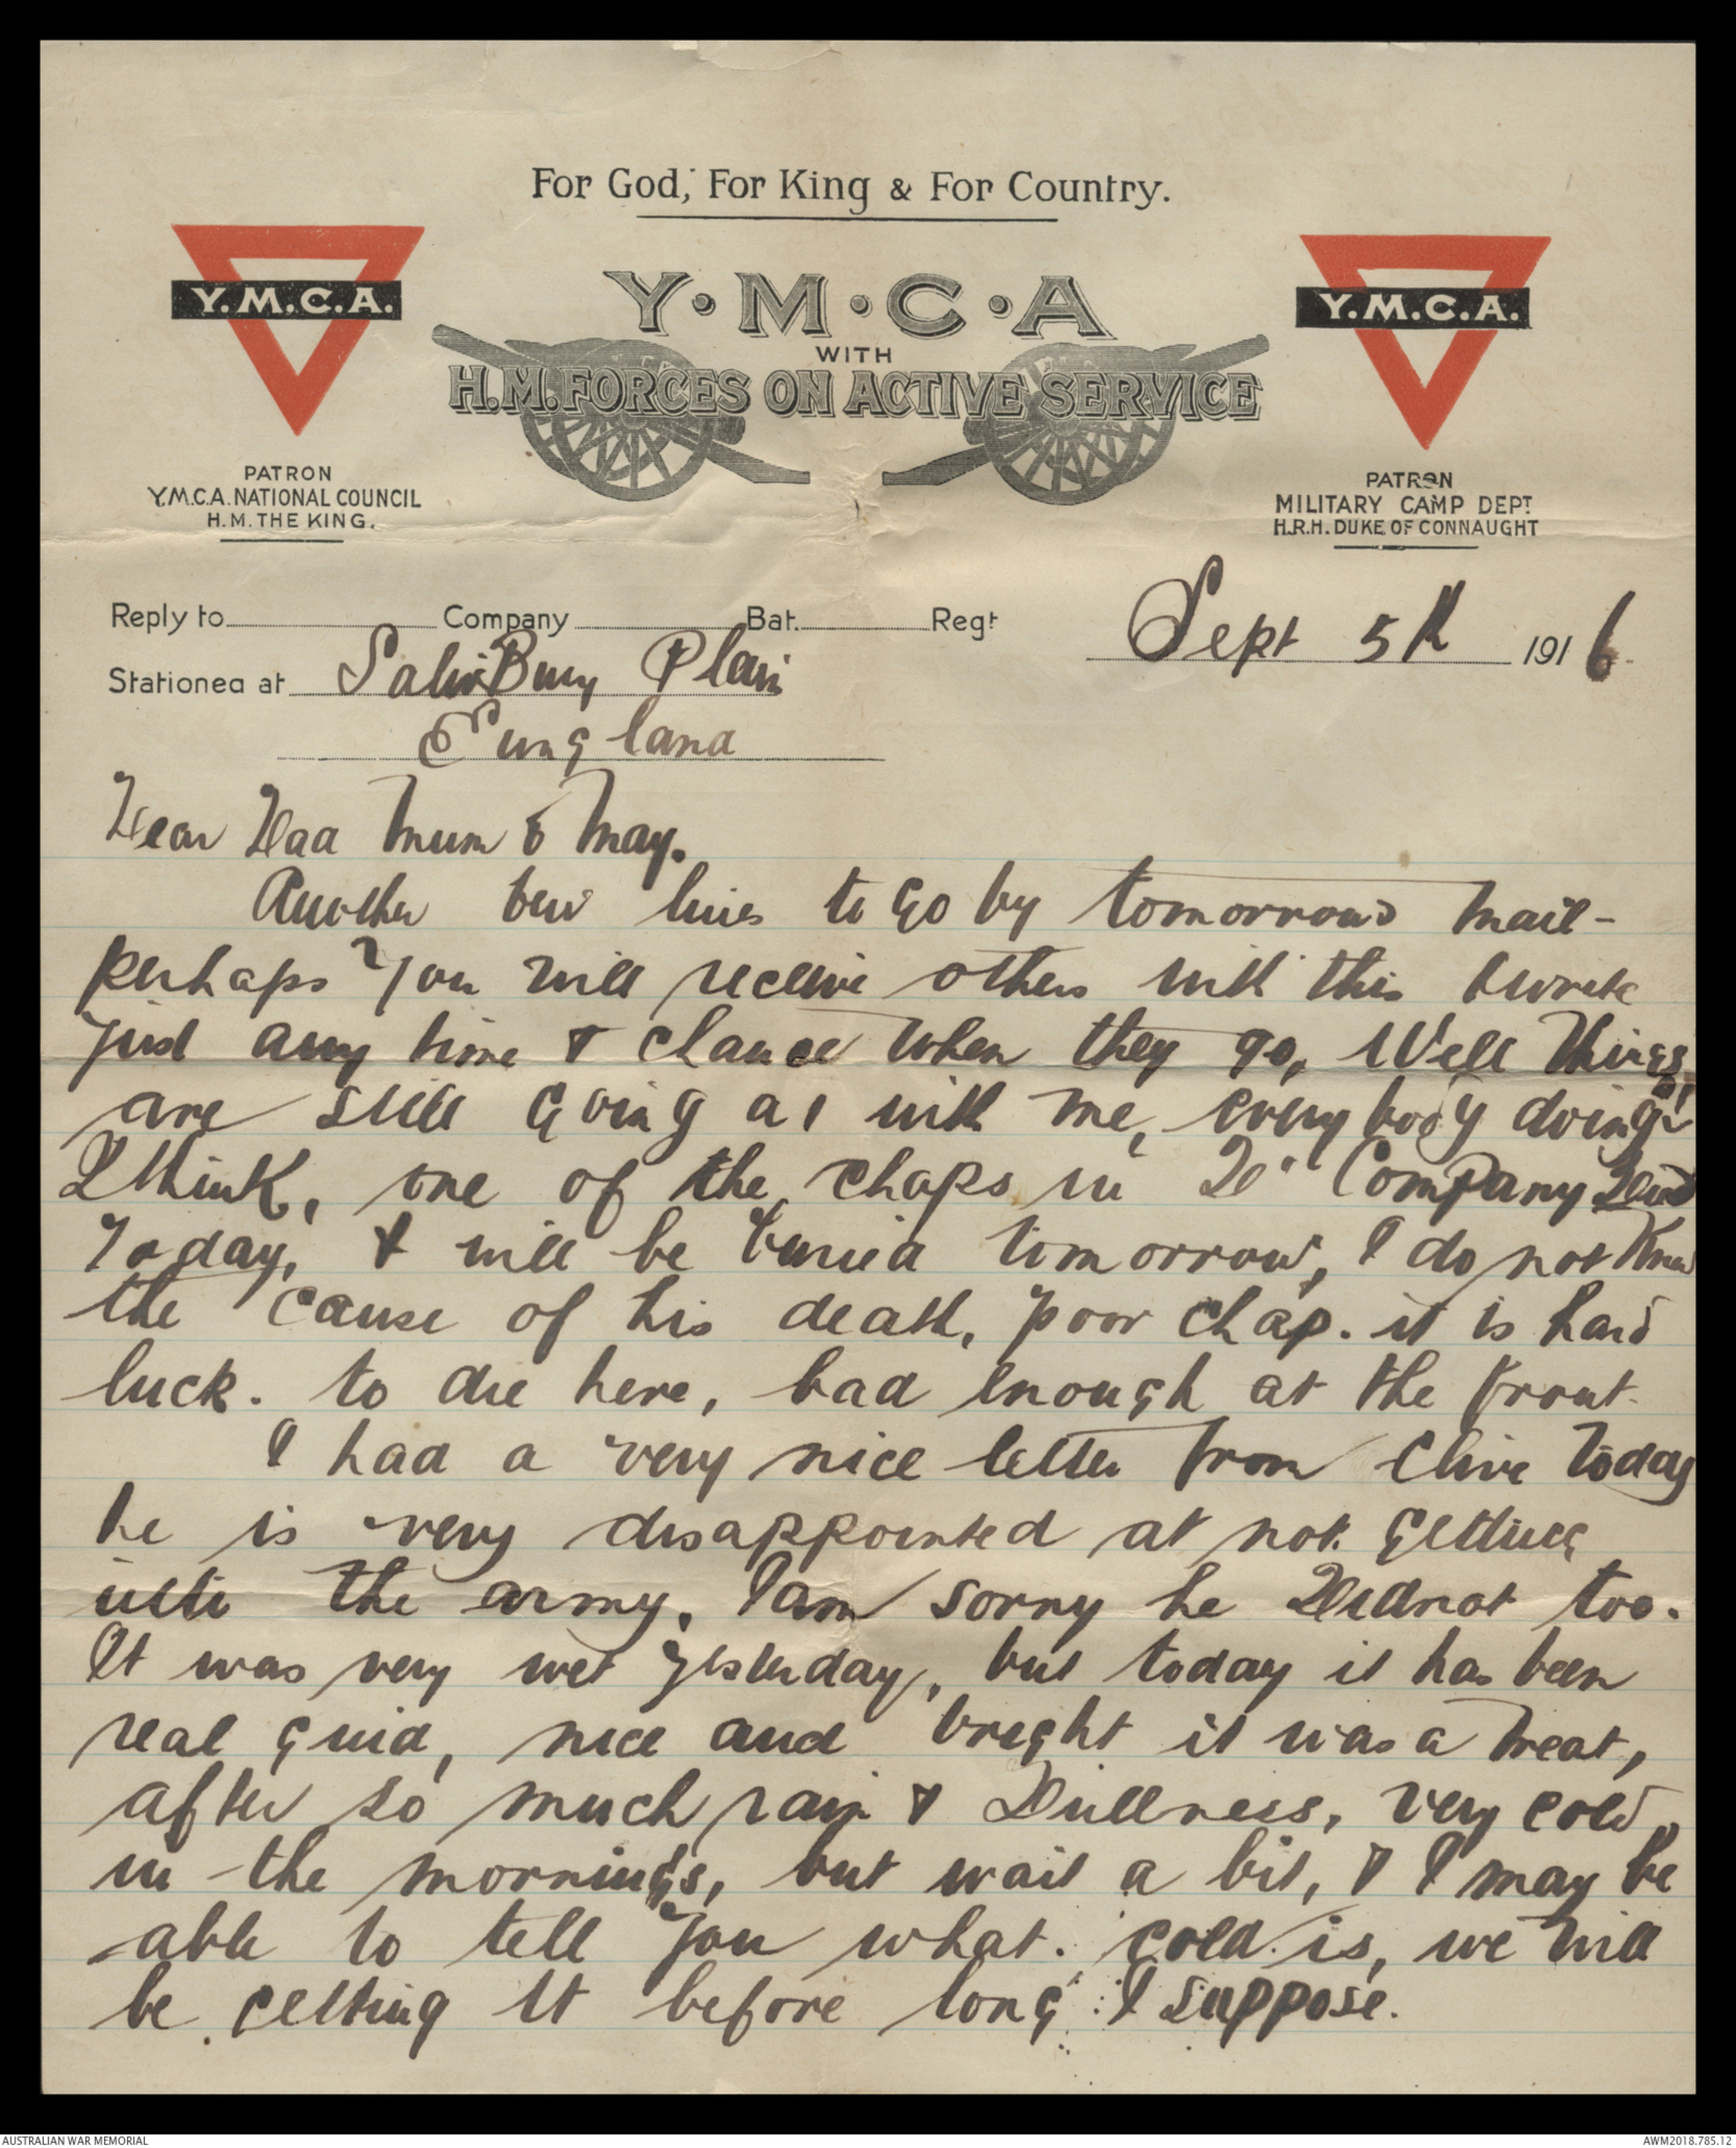 For God, For King & For Country.
Y.M.C.A.
Y·M·C·A
WITH
H.M. FORCES ON ACTIVE SERVICE
Y.M.C.A.
PATRON
Y.M.C.A. NATIONAL COUNCIL
H.M. THE KING.
PATRON
MILITARY CAMP DEPT.
H.R.H. DUKE OF CONNAUGHT
Reply to Company Bat. Regt Sept 5th 1916
Stationed at SalisBury Plain
England
Dear Dad Mum & May.
Another few lines to go by tomorrows mail-
perhaps you will receive others with this I write
just any time & chance when they go, Well Things
are still going at with me, everybody doing
I think, one of the chaps in D Company Died
Today, & will be buried tomorrow, I do not Know
the cause of his death, poor chap. it is hard
luck. to die here, bad enough at the front.
I had a very nice letter from Clive Today
he is very disappointed at not getting
into the army. I am sorry he Did not too.
It was very wet yesterday, but today it has been
real good, nice and bright it was a treat,
after so much rain & Dullness, very cold
in the mornings, but wait a bit, & I may be
able to tell you what. cold is, we will
be getting it before long I suppose.
AUSTRALIAN WAR MEMORIAL
AWM2018.785.12